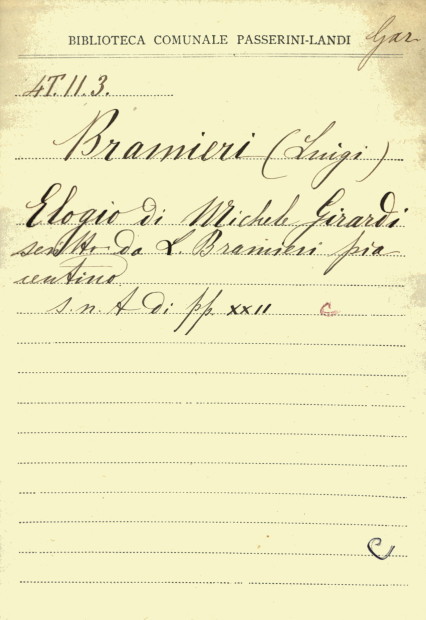 BIBLIOTECA COMUNALE PASSERINI-LANDI
Gar
4T.II.3.
Bramieri (Luigi)
Elogio di Michele Girardi
scritto da L. Bramieri pia
centino
s. n. t di pp. XXII C
C